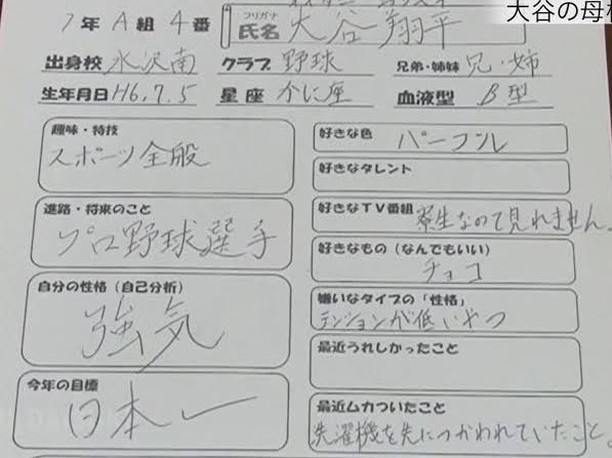 大谷の母校
1年 A組 4番
フリガナ
氏名 大谷翔平
出身校 水沢南 クラブ 野球 兄弟・姉妹 兄・姉
生年月日 H6.7.5 星座 かに座 血液型 B型
趣味・特技
スポーツ全般
進路・将来のこと
プロ野球選手
自分の性格(自己分析)
強気
今年の目標
日本一
好きな色 パープル
好きなタレント
好きなTV番組 寮生なので見れません。
好きなもの(なんでもいい)
チョコ
嫌いなタイプの「性格」
テンションが低いやつ
最近うれしかったこと
最近ムカついたこと
洗濯機を先につかわれていたこと。